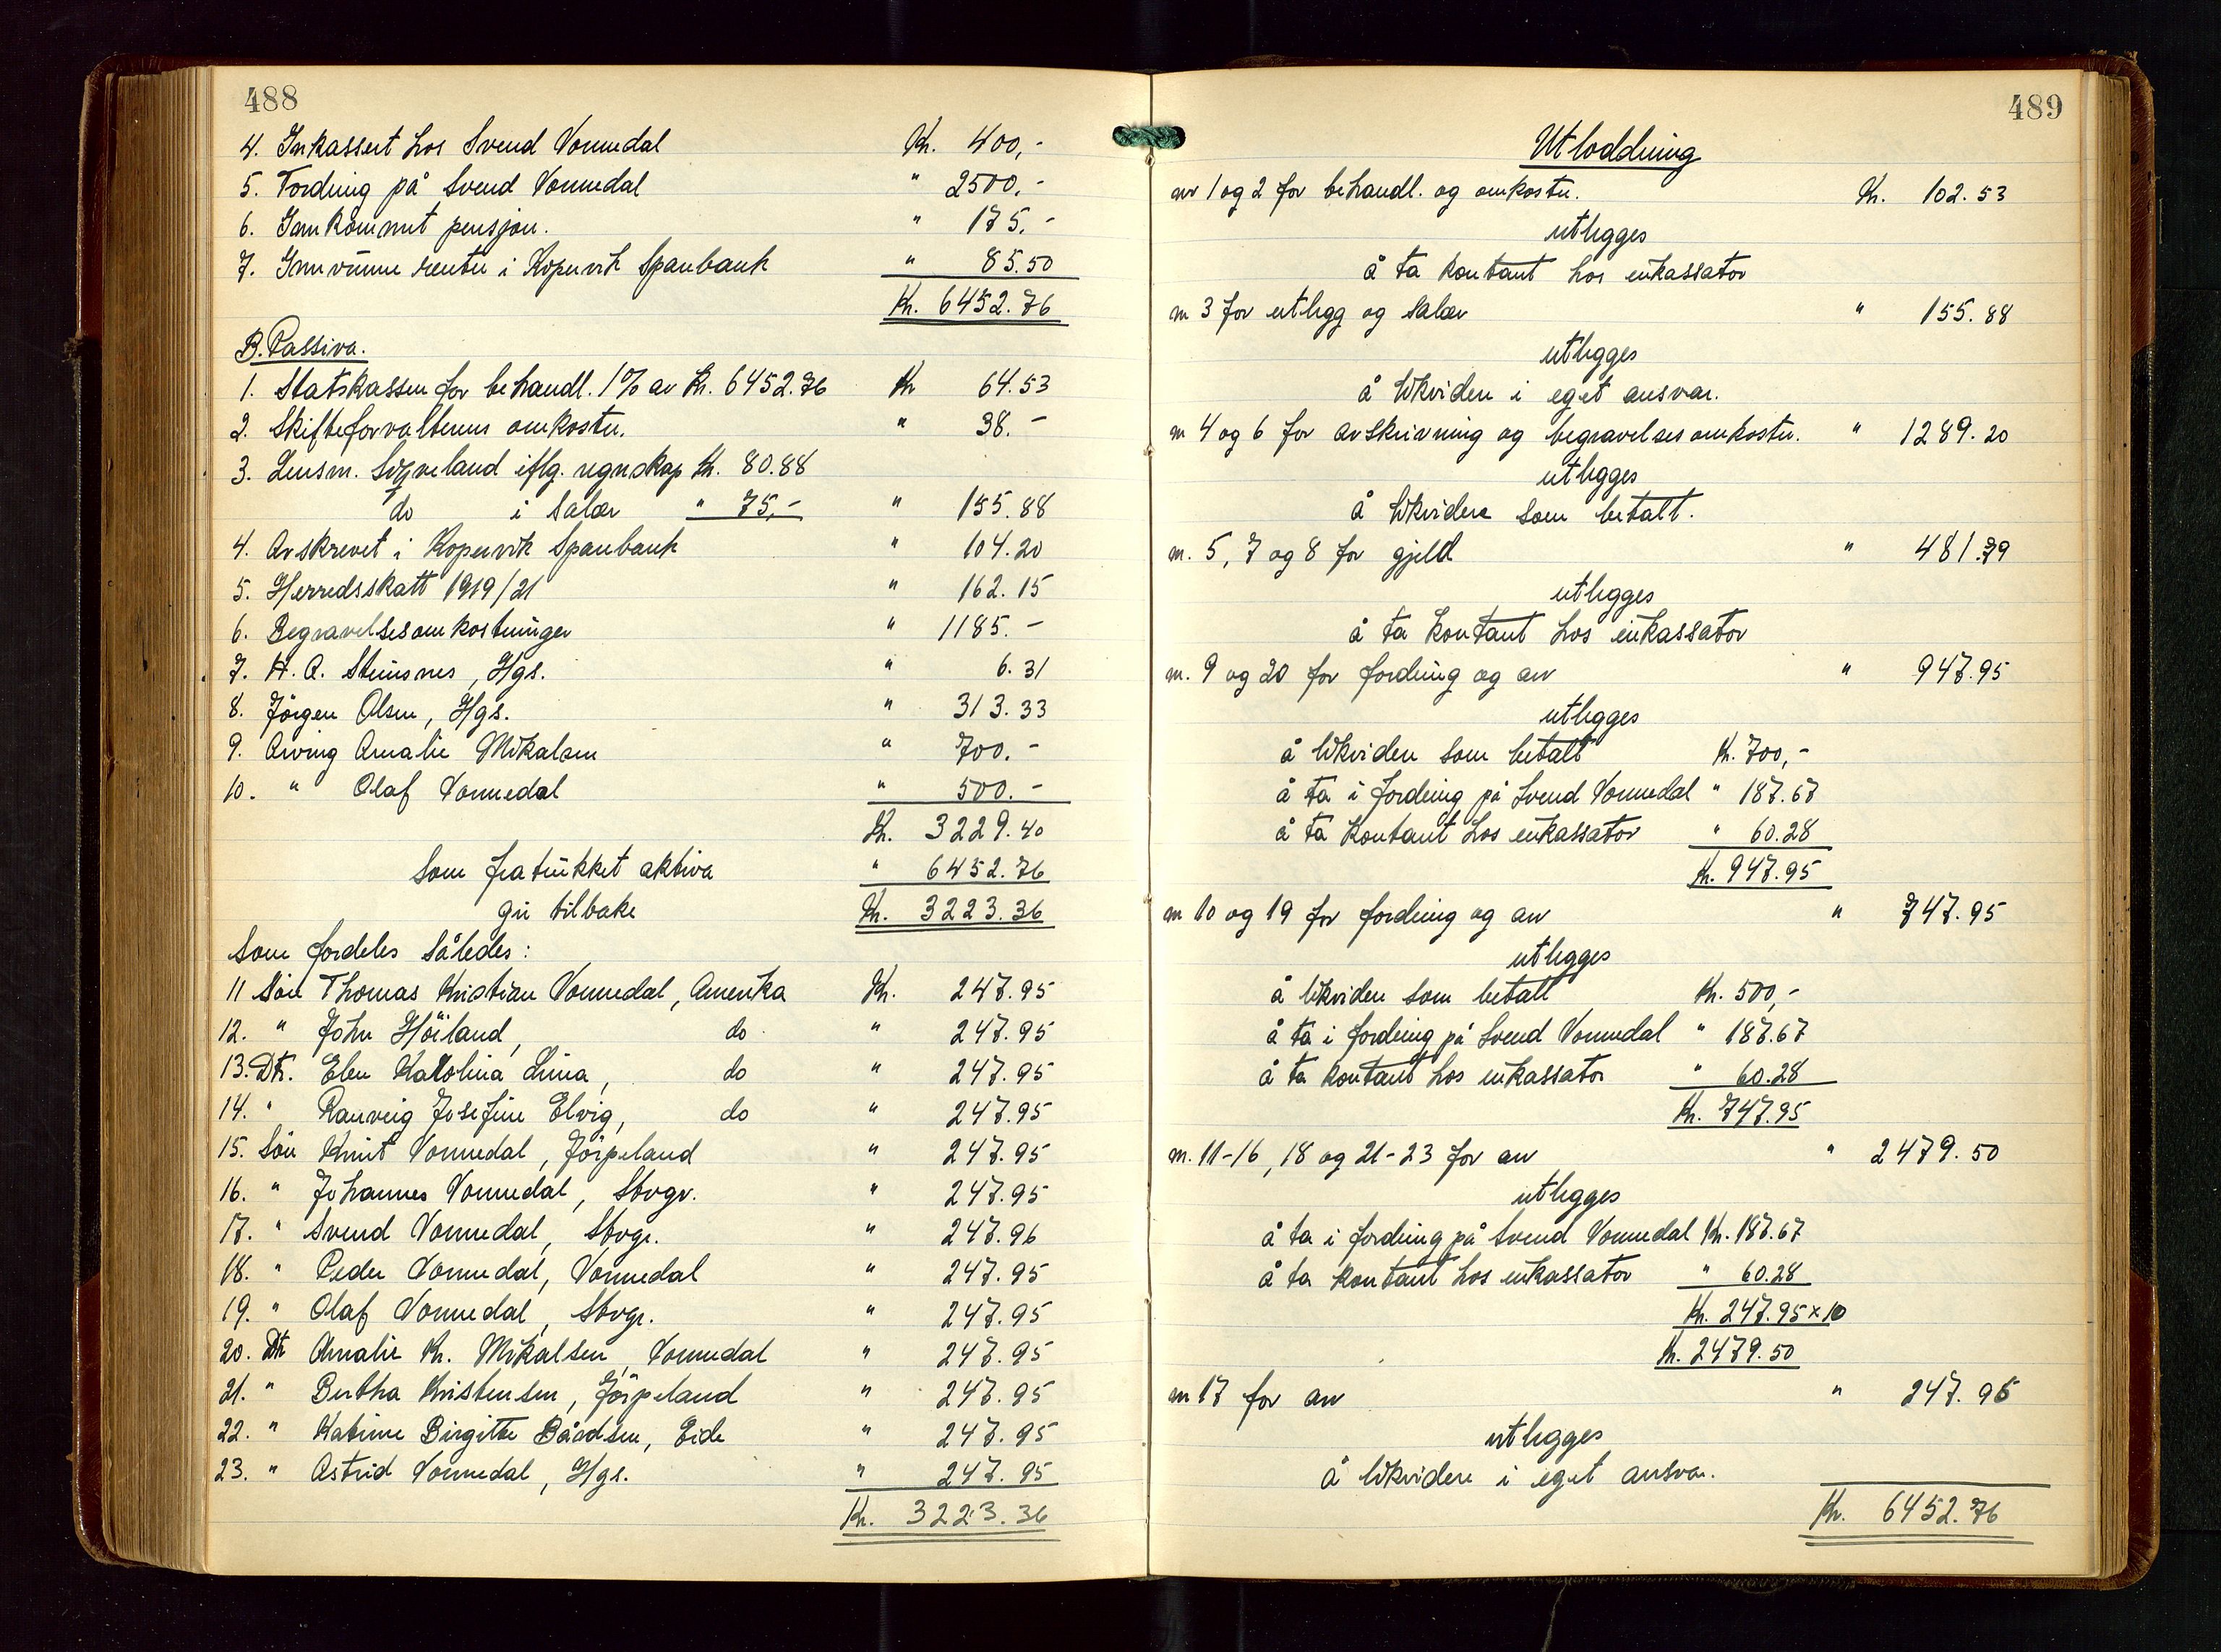 488
4. Inkassert hos Svend Vormedal Kr. 400,-
5. Fordring på Svend Vormedal " 2500,-
6. Innkommet pensjon. " 175.-
7. Innvunne renter i Kopervik Sparebank " 85.50
Kr. 6452.76
B. Passiva.
1. Statskassen for behandl. 1% av Kr. 6452.76 Kr 64.53
2. Skifteforvalterens omkostn. " 38.-
3. Lensm. iflg. regnskap Kr. 80.88
do i salær " 75,- " 155.88
4. Avskrevet i Kopervik Sparebank " 104.20
5. Herredsskatt 1919/21 " 162.15
6. Begravelsesomkostninger " 1185.-
7. H. A. Steinsnes, Hgs. " 6.31
8. Jörgen Olsen, Hgs. " 313.33
9. Arving Amalie Mikalsen " 700.-
10. " Olaf Vormedal " 500.-
Kr. 3229.40
Som fratrukket aktiva " 6452.76
gir tilbake Kr. 3223.36
Som fordeles således:
11 Sön Thomas Kristian Vormedal, Amerika Kr. 247.95
12. " John Höiland, do " 247.95
13. Dtr. Elen Karolina Lima, do " 247.95
14. " Ranveig Josefine Elvig, do " 247.95
15. Sön Knut Vormedal, Jörpeland " 247.95
16. " Johannes Vormedal, Sbvgr. " 247.95
17. " Svend Vormedal, Sbvgr. " 247.96
18. " Peder Vormedal, Vormedal " 247.95
19. " Olaf Vormedal, Sbvgr. " 247.95
20. Dtr Amalie Kr. Mikalsen, Vormedal " 247.95
21. " Bertha Kristensen, Jörpeland " 247.95
22. " Katrine Birgitte Bårdsen, Eide " 247.95
23. " Astrid Vormedal, Hgs. " 247.95
Kr. 3223.36
489
Utloddning
nr 1 og 2 for behandl. og omkostn. Kr. 102.53
utlegges
å ta kontant hos inkassator
nr 3 for utlegg og salær " 155.88
utlegges
å likvidere i eget ansvar.
nr 4 og 6 for avskrivning og begravelsesomkostn. " 1289.20
utlegges
å likvidere som betalt.
nr. 5, 7 og 8 for gjeld " 481.79
utlegges
å ta kontant hos inkassator
nr. 9 og 20 for fordring og arv " 947.95
utlegges
å likvidere som betalt Kr. 700,-
å ta i fordring på Svend Vormedal " 187.67
å ta kontant hos inkassator " 60.28
Kr. 947.95
nr 10 og 19 for fordring og arv " 747.95
utlegges
å likvidere som betalt Kr. 500,-
å ta i fordring på Svend Vormedal " 187.67
å ta kontant hos inkassator " 60.28
Kr. 747.95
nr. 11-16, 18 og 21-23 for arv " 2479.50
utlegges
å ta i fordring på Svend Vormedal Kr. 187.67
å ta kontant hos inkassator " 60.28
Kr. 247.95 x 10
Kr. 2479.50
nr 17 for arv " 247.96
utlegges
å likvidere i eget ansvar.
Kr. 6452.76